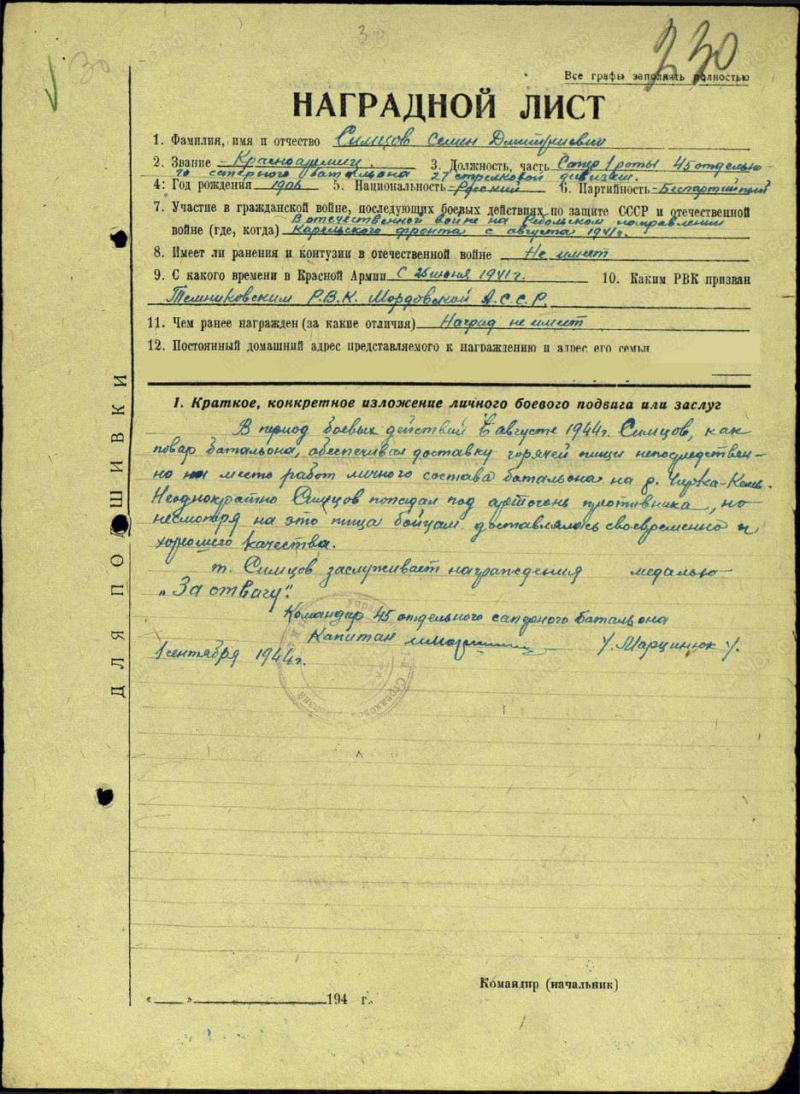 230
Все графы заполнять полностью
НАГРАДНОЙ ЛИСТ
1. Фамилия, имя и отчество Симцов Семин Дмитриевич
2. Звание Красноармеец. 3. Должность, часть Сапер 1 роты 45 отдельно-
го саперного батальона 27 стрелковой дивизии.
4. Год рождения 1906 5. Национальность Русский 6. Партийность Беспартийный
7. Участие в гражданской войне, последующих боевых действиях по защите СССР и отечественной
В отечественной войне на Ребольском направлении
войне (где, когда) Карельского фронта с августа 1941г.
8. Имеет ли ранения и контузии в отечественной войне Не имеет
9. С какого времени в Красной Армии С 26 июня 1941г. 10. Каким РВК призван
Темниковским Р.В.К. Мордовской А.С.С.Р.
11. Чем ранее награжден (за какие отличия) Наград не имеет
12. Постоянный домашний адрес представляемого к награждению и адрес его семьи
I. Краткое, конкретное изложение личного боевого подвига или заслуг
В период боевых действий в августе 1944г. Симцов, как
повар батальона, обеспечивал доставку горячей пищи непосредствен-
но на место работ личного состава батальона на р. Чирка-Кемь.
Неоднократно Симцов попадал под артогонь противника, но
несмотря на это пища бойцам доставлялось своевременно и
хорошего качества.
т. Симцов заслуживает награждения медалью
"За отвагу".
Командир 45 отдельного саперного батальона
Капитан /Марцинюк/.
1 сентября 1944г.
Командир (начальник)
«___»______194 г.
ДЛЯ ПОДШИВКИ